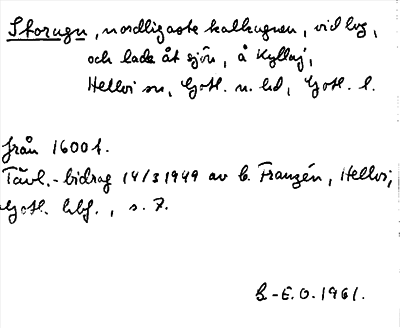 Storugn, nordligaste kalkugnen, vid lvg,
och lade åt sjön, å Kyllaj,
Hellvi sn, Gotl. n. hd, Gotl. l.
från 1600 t.
Tävl.-bidrag 14/3 1949 av B. Franzén, Hellvi,
Gotl. hbf., s. 7.
B.-E.O. 1961.